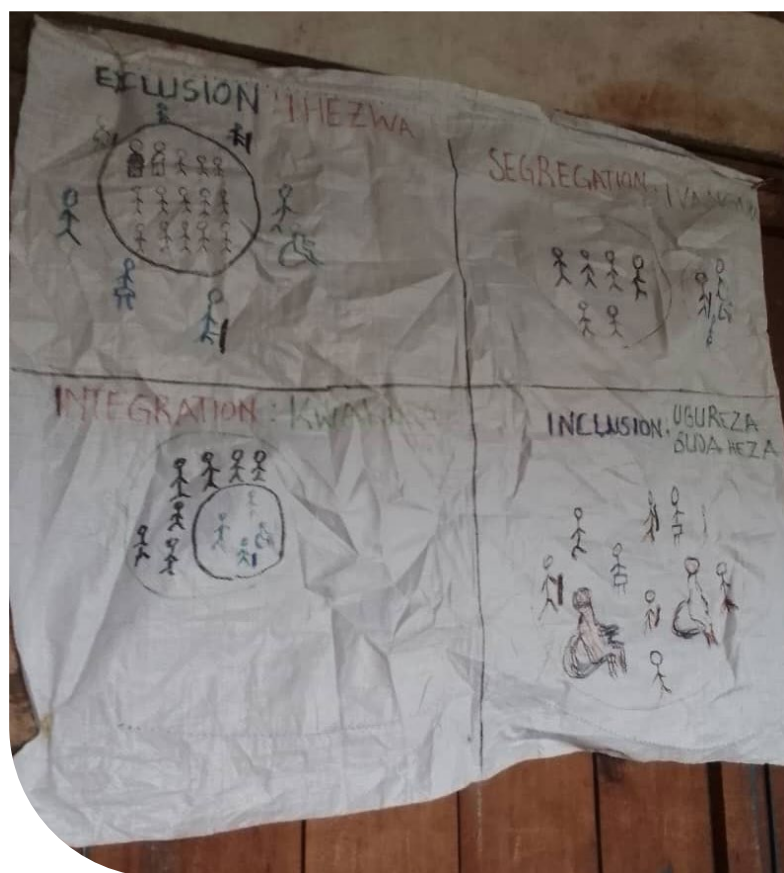 EXCLUSION: IHEZWA
SEGREGATION:
INTEGRATION:
INCLUSION: UBUREZA
BUDAHEZA